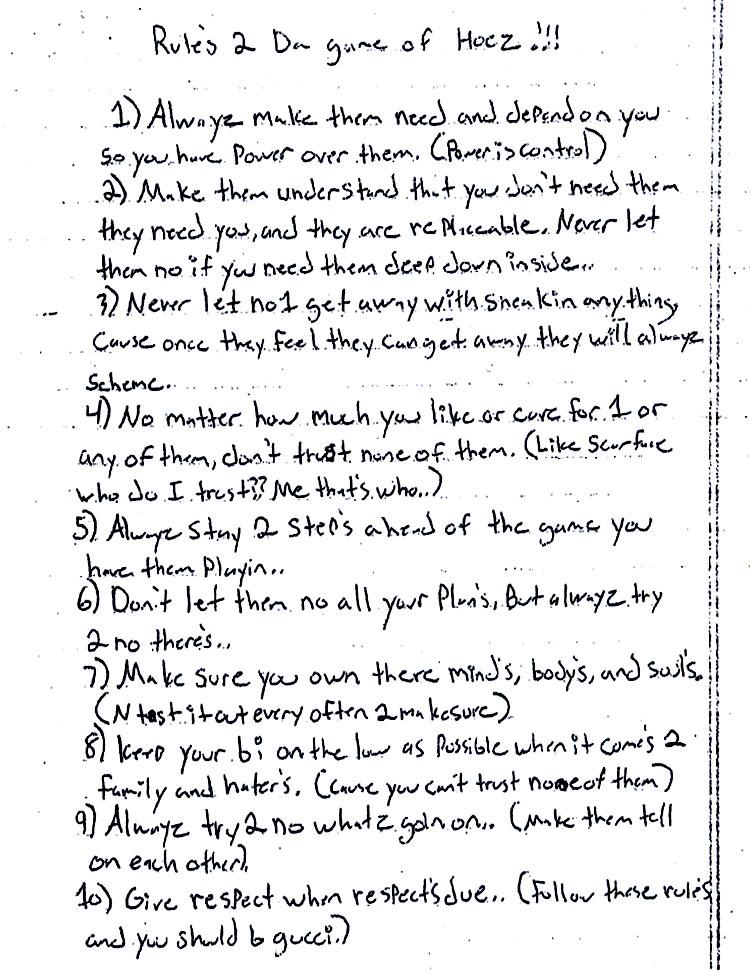 Rule's 2 Da game of Hoez!!!
1) Alwayz make them need and depend on you
so you have Power over them. (Power is control)
2) Make them understand that you don't need them
they need you, and they are replaceable. Never let
them no if you need them deep down inside..
3) Never let no1 get away with sneakin anything,
Cause once they feel they can get away they will alwayz
Scheme.
4) No matter how much you like or care for 1 or
any of them, don't trust none of them. (Like Scarface
who do I trust?? Me that's who..)
5) Alwayz stay 2 step's ahead of the game you
have them Playin..
6) Don't let them no all your Plan's, But alwayz try
2 no there's..
7) Make sure you own there mind's, body's, and soul's.
(N test it out every often 2 make sure)
8) Keep your bi on the low as Possible when it come's 2
family and hater's. (cause you can't trust none of them)
9) Alwayz try 2 no whatz goin on.. (Make them tell
on each other).
10) Give respect when respect's due.. (Follow these rules
and you should b gucci.)